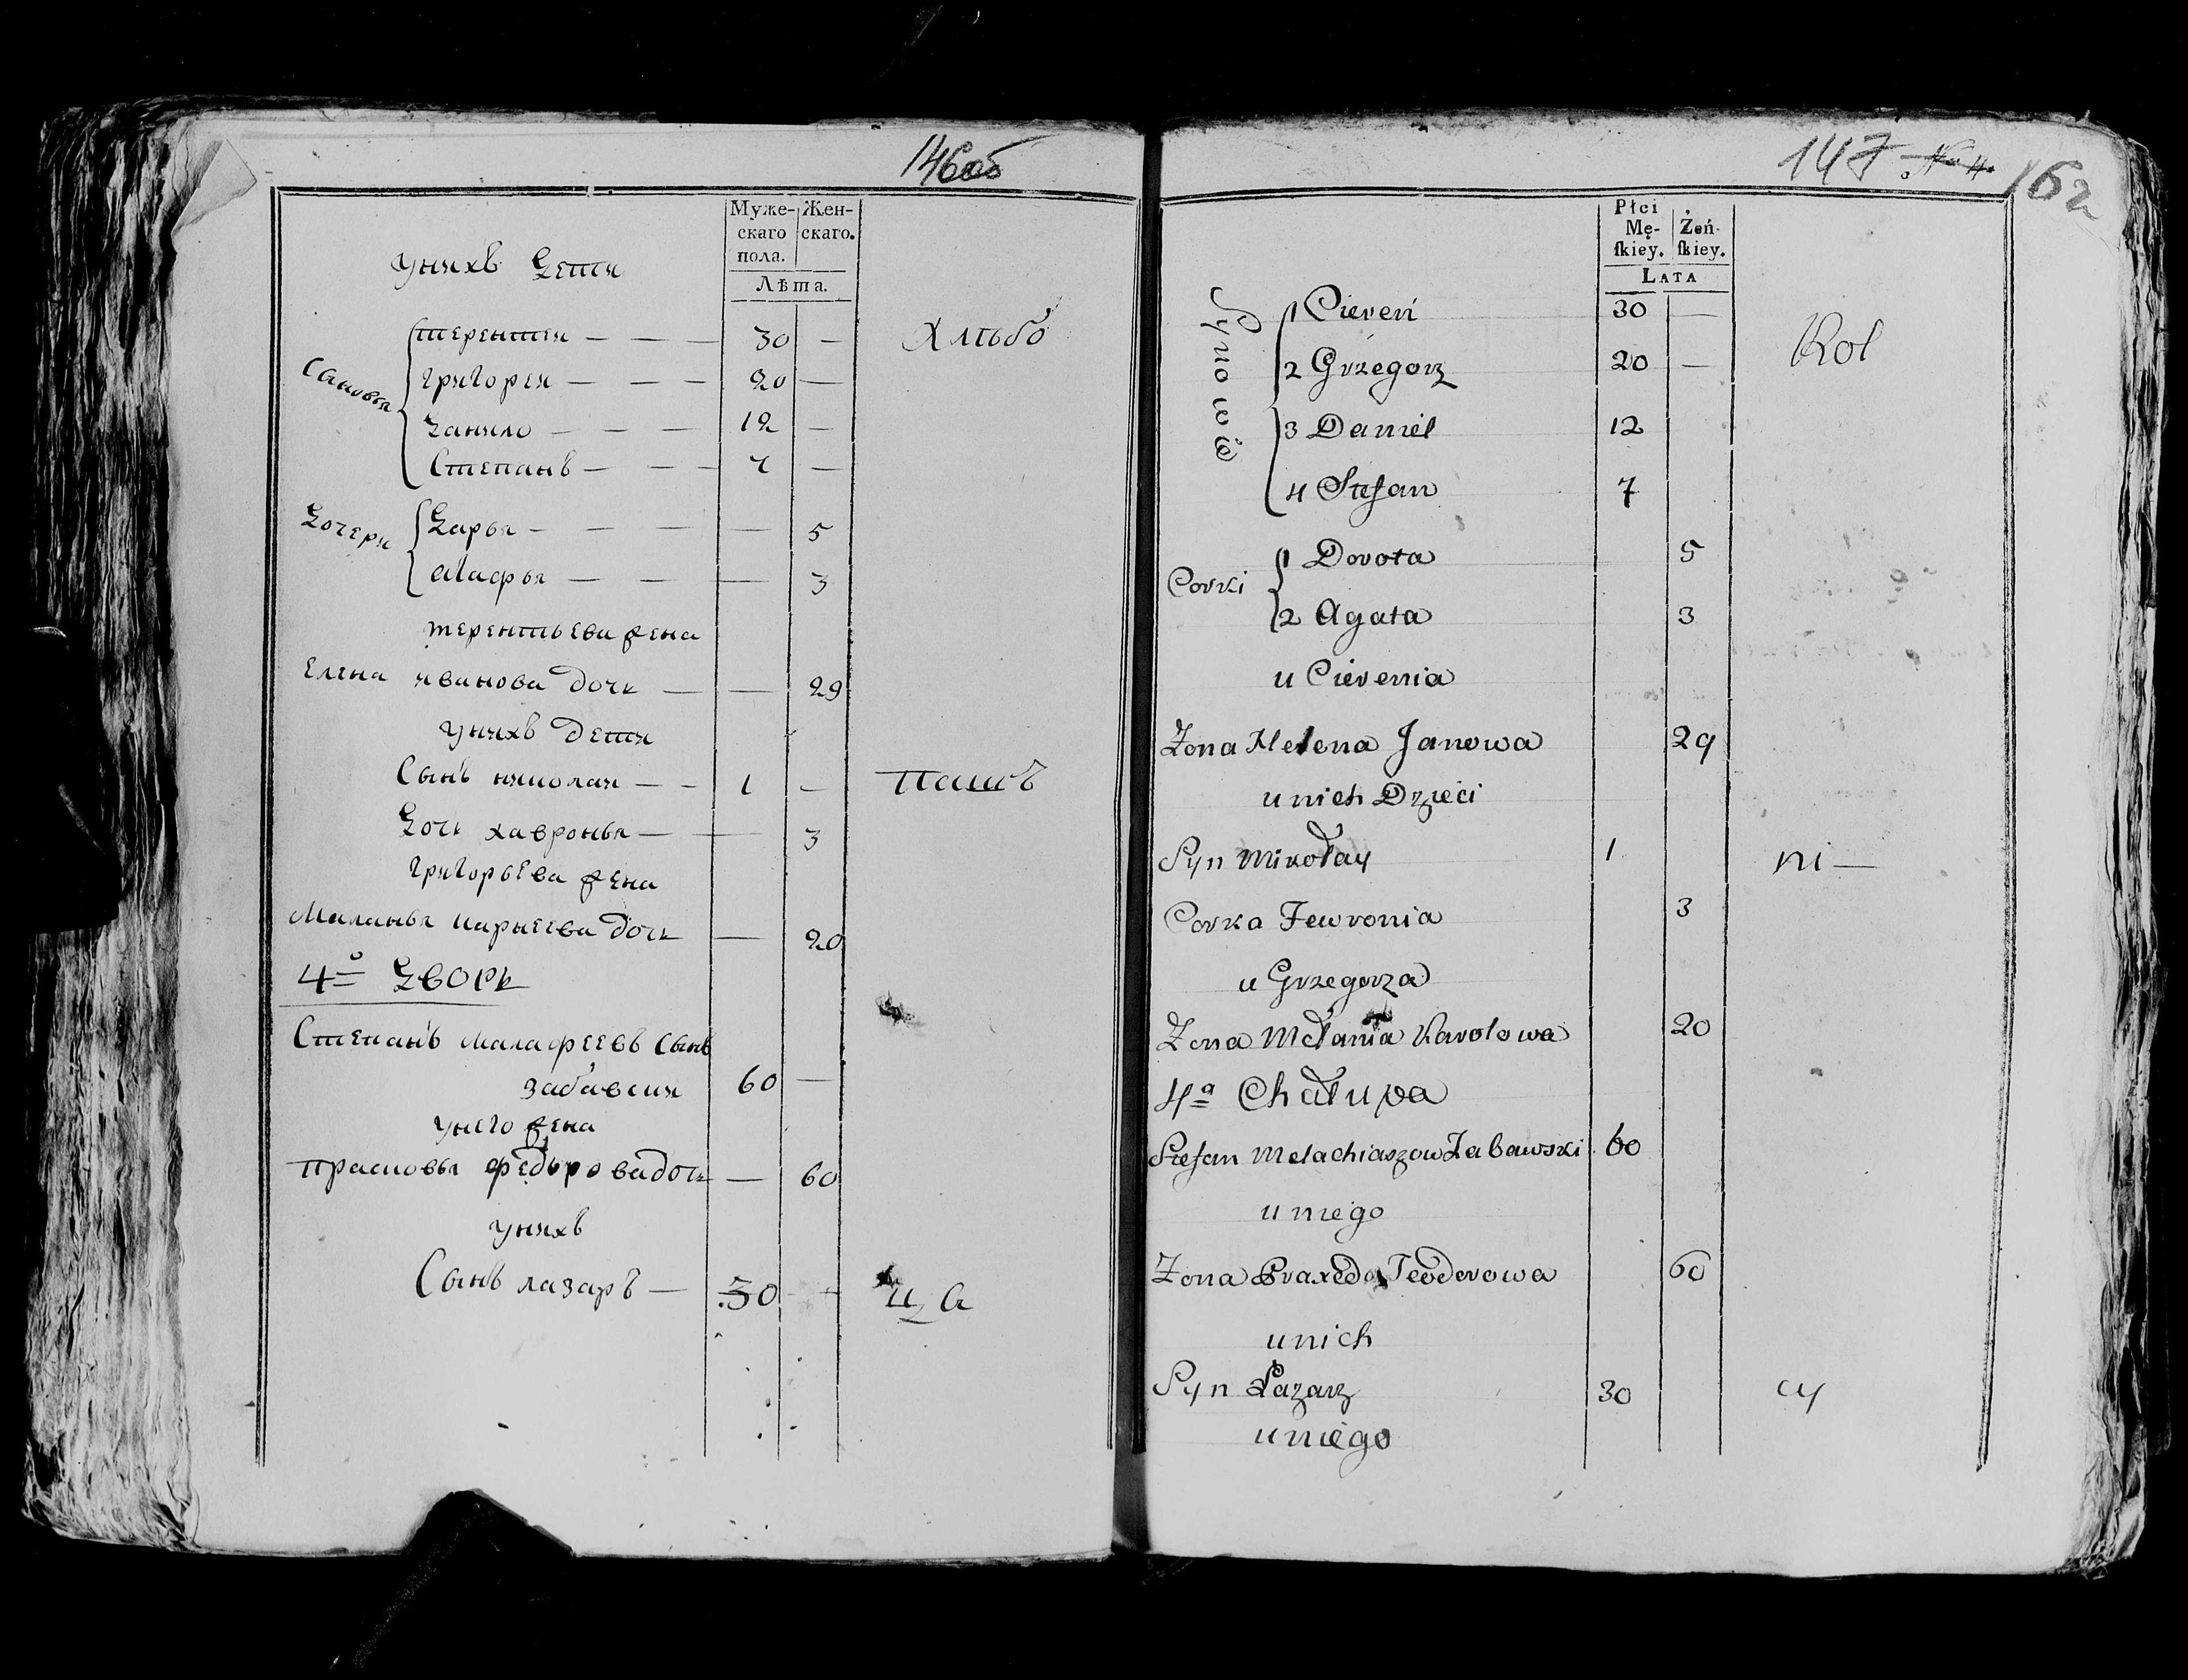 146об
Муже- Жен-
скаго скаго.
пола.
Лѣта.
унихъ Дети
Терентеи — — — 30 — Хлѣбо
Сановья Григореи — — — 20 —
Данило — — — 12 —
Степанъ — — — 7 —
Дочери Дарья — — — — 5
Агафья — — — 3
терентьева жена
Елена иванова дочь — — 29
унихъ дети
Сынъ николаи — — 1 — паше
Дочь хавронья — — 3
григорьева жена
Маланья карнеева дочь — 20
4й дворъ
Степанъ малафеевъ сынъ
забавски 60 —
унего жена
прасковья федорова дочь — 60
унихъ
Сынъ лазаръ — 30 — ца
147 162
Płci Żeń-
Mę- ſkiey.
ſkiey.
LATA
Synowie 1 Cieren 30 — Rol
2 Grzegorz 20 —
3 Daniel 12
4 Stefan 7
Corki 1 Dorota 5
2 Agata 3
u Cierenia
Zona Helena Janowa 29
unich Dzieci
Syn Mikołay 1 ni—
Corka Fewronia 3
u Grzegorza
Zona Mełania Karolowa 20
4a Chałupa
Stefan Melachiaszow Zabawski 60
uniego
Zona Praxeda Teodorowa 60
unich
Syn Łazarz 30 cy
uniego